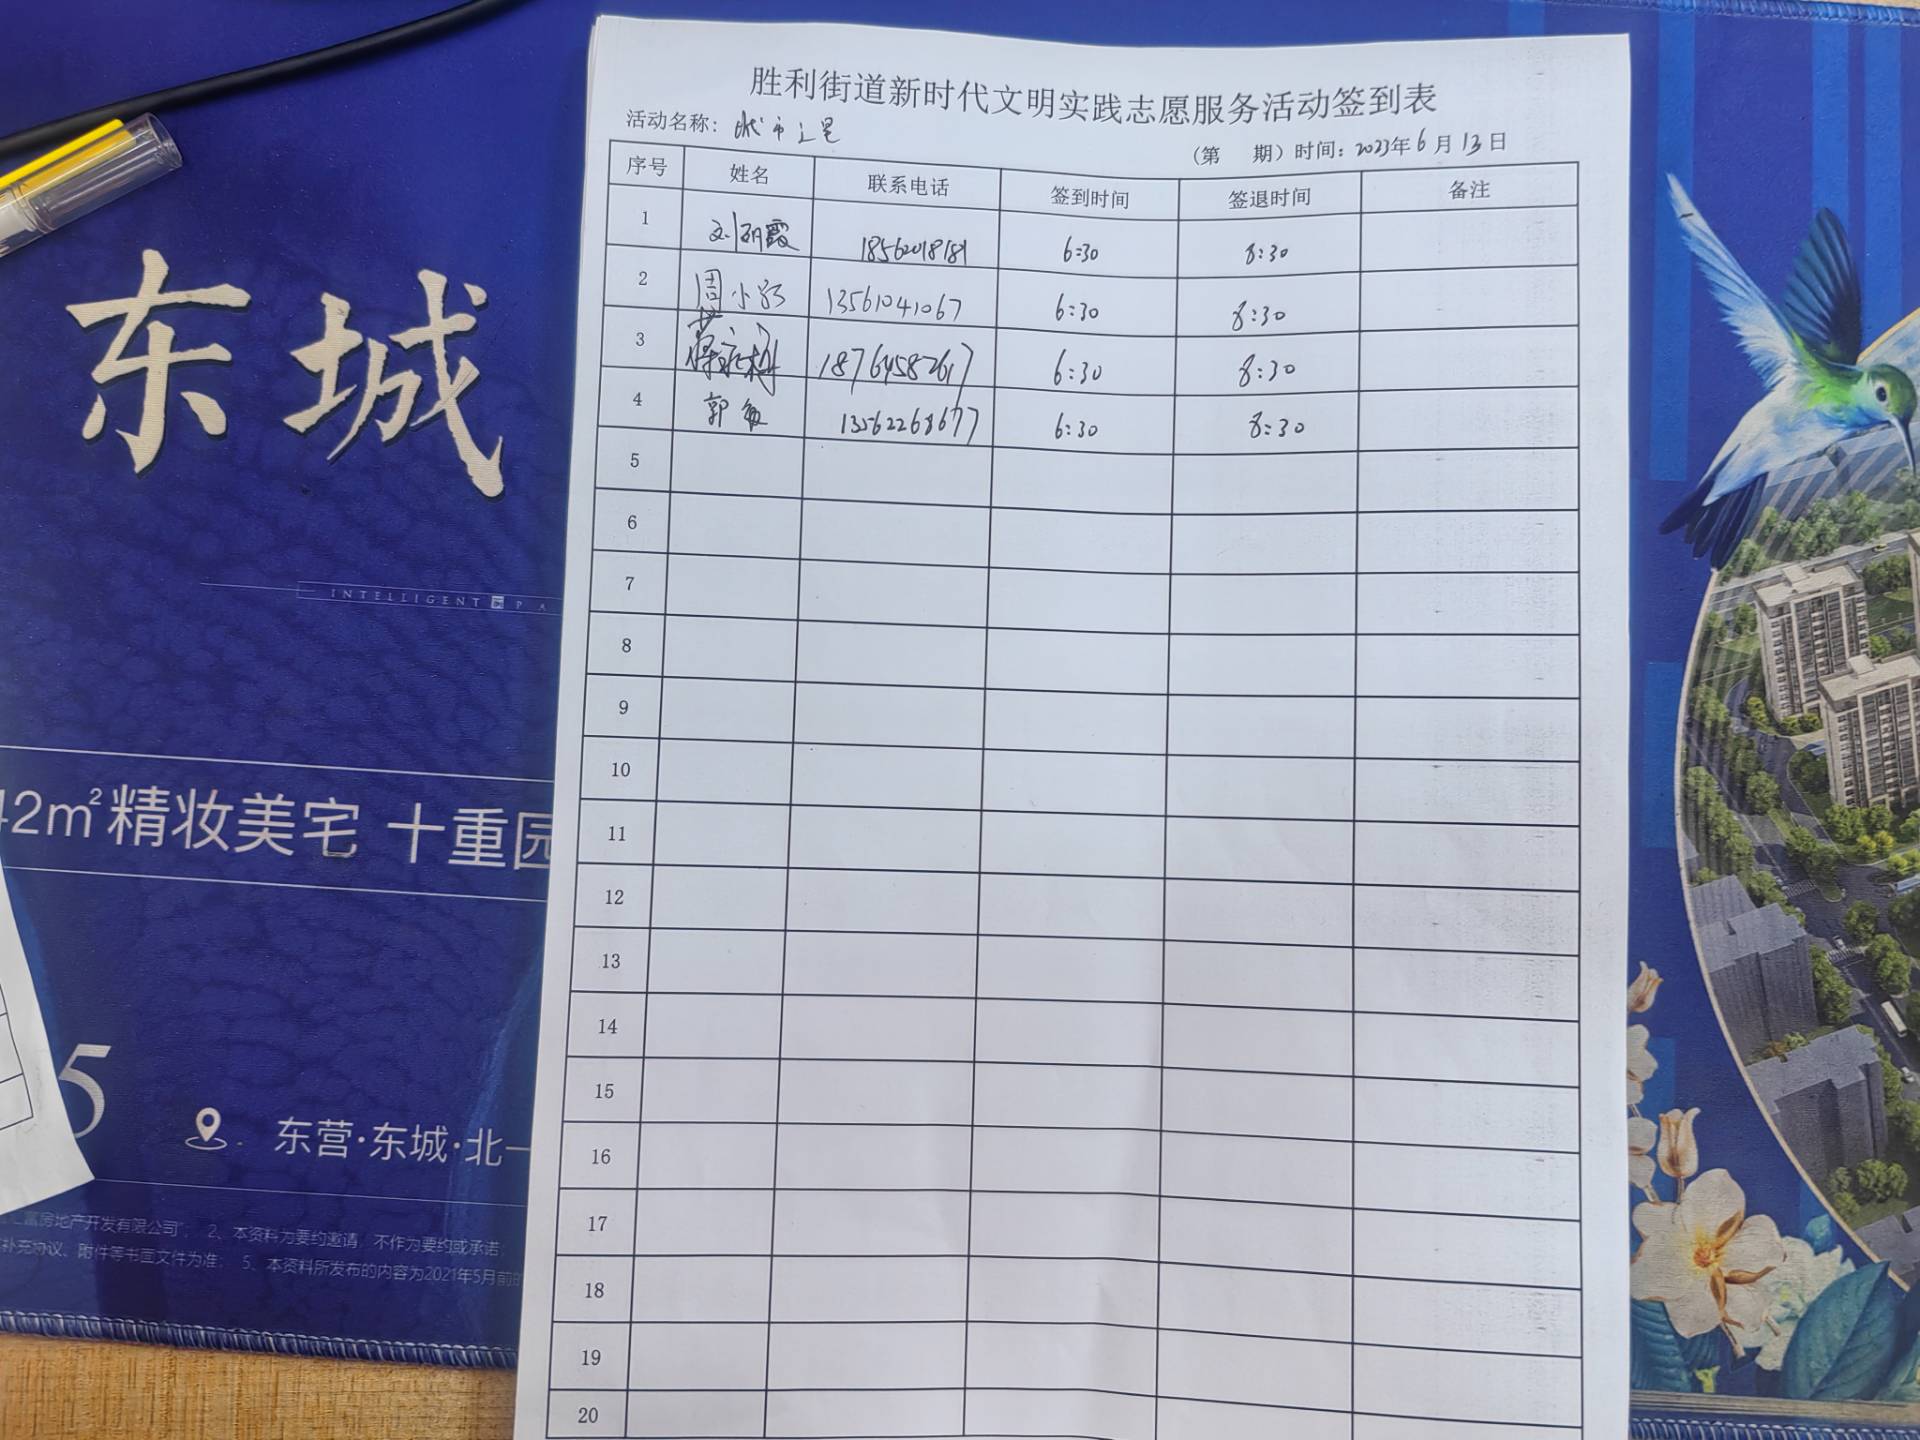 胜利街道新时代文明实践志愿服务活动签到表
活动名称：
（第 期）时间：2023年6月13日
序号 姓名 联系电话 签到时间 签退时间 备注
1 6:30 8:30
2 周小 13561041067 6:30 8:30
3 18764582617 6:30 8:30
4 郭敏 13562268677 6:30 8:30
5
6
7
8
9
10
11
12
13
14
15
16
17
18
19
20
东城
INTELLIGENT PA
42m²精妆美宅 十重园
5
东营·东城·北一
房地产开发有限公司"； 2、本资料为要约邀请，不作为要约或承诺
补充协议、附件等书面文件为准； 5、本资料所发布的内容为2021年5月前的